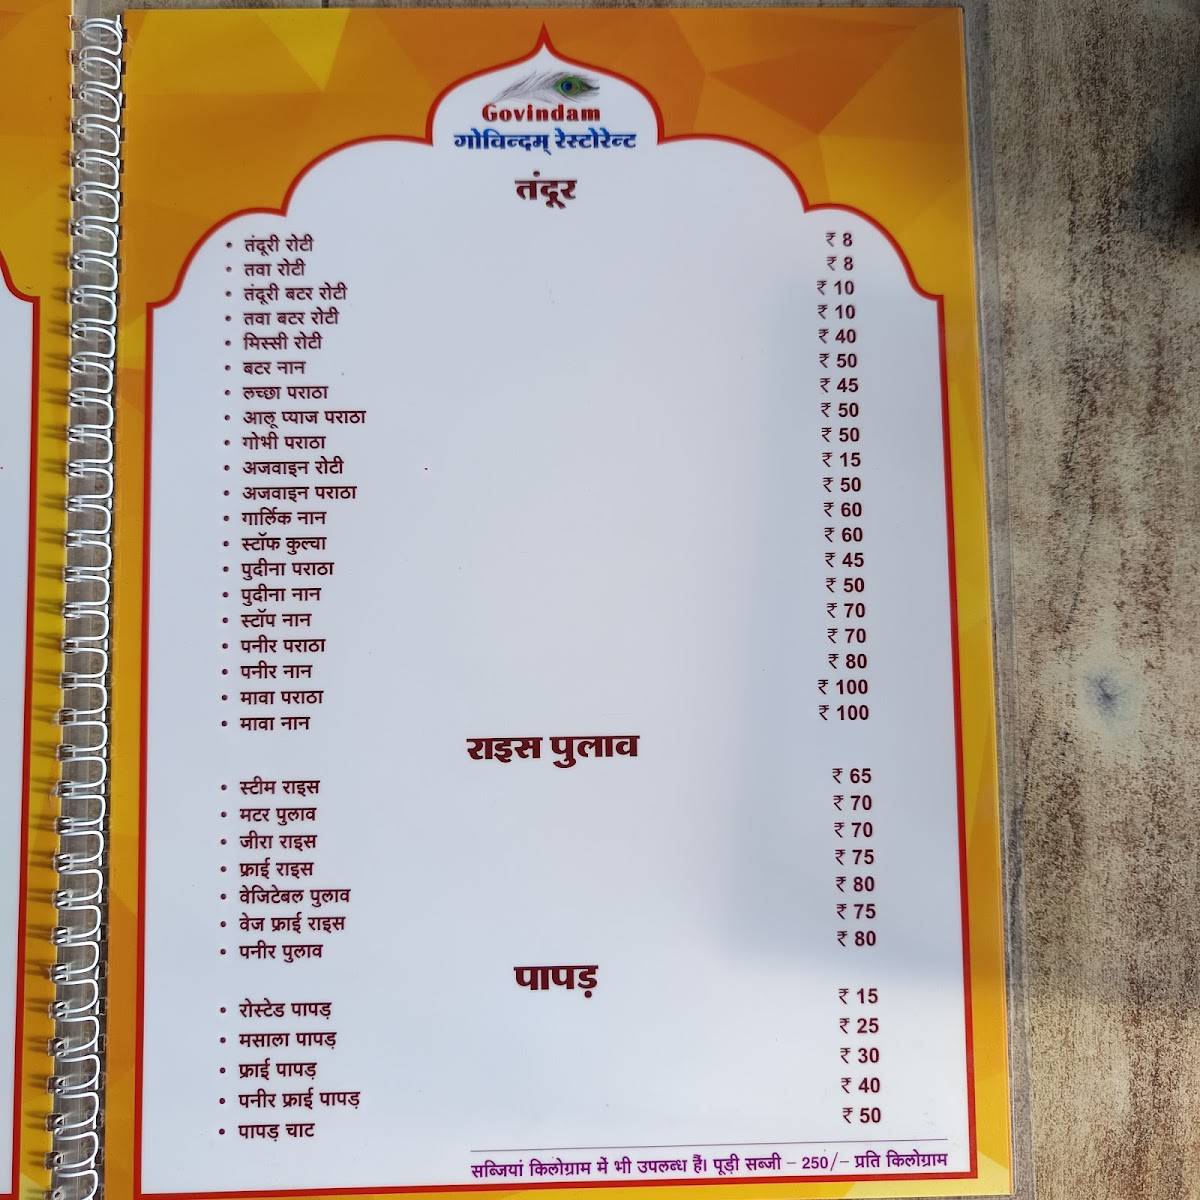 Govindam
गोविन्दम् रेस्टोरेन्ट
तंदूर
• तंदूरी रोटी ₹ 8
• तवा रोटी ₹ 8
• तंदूरी बटर रोटी ₹ 10
• तवा बटर रोटी ₹ 10
• मिस्सी रोटी ₹ 40
• बटर नान ₹ 50
• लच्छा पराठा ₹ 45
• आलू प्याज पराठा ₹ 50
• गोभी पराठा ₹ 50
• अजवाइन रोटी ₹ 15
• अजवाइन पराठा ₹ 50
• गार्लिक नान ₹ 60
• स्टॉफ कुल्चा ₹ 60
• पुदीना पराठा ₹ 45
• पुदीना नान ₹ 50
• स्टॉप नान ₹ 70
• पनीर पराठा ₹ 70
• पनीर नान ₹ 80
• मावा पराठा ₹ 100
• मावा नान ₹ 100
राइस पुलाव
• स्टीम राइस ₹ 65
• मटर पुलाव ₹ 70
• जीरा राइस ₹ 70
• फ्राई राइस ₹ 75
• वेजिटेबल पुलाव ₹ 80
• वेज फ्राई राइस ₹ 75
• पनीर पुलाव ₹ 80
पापड़
• रोस्टेड पापड़ ₹ 15
• मसाला पापड़ ₹ 25
• फ्राई पापड़ ₹ 30
• पनीर फ्राई पापड़ ₹ 40
• पापड़ चाट ₹ 50
सब्जियां किलोग्राम में भी उपलब्ध हैं। पूड़ी सब्जी – 250/– प्रति किलोग्राम